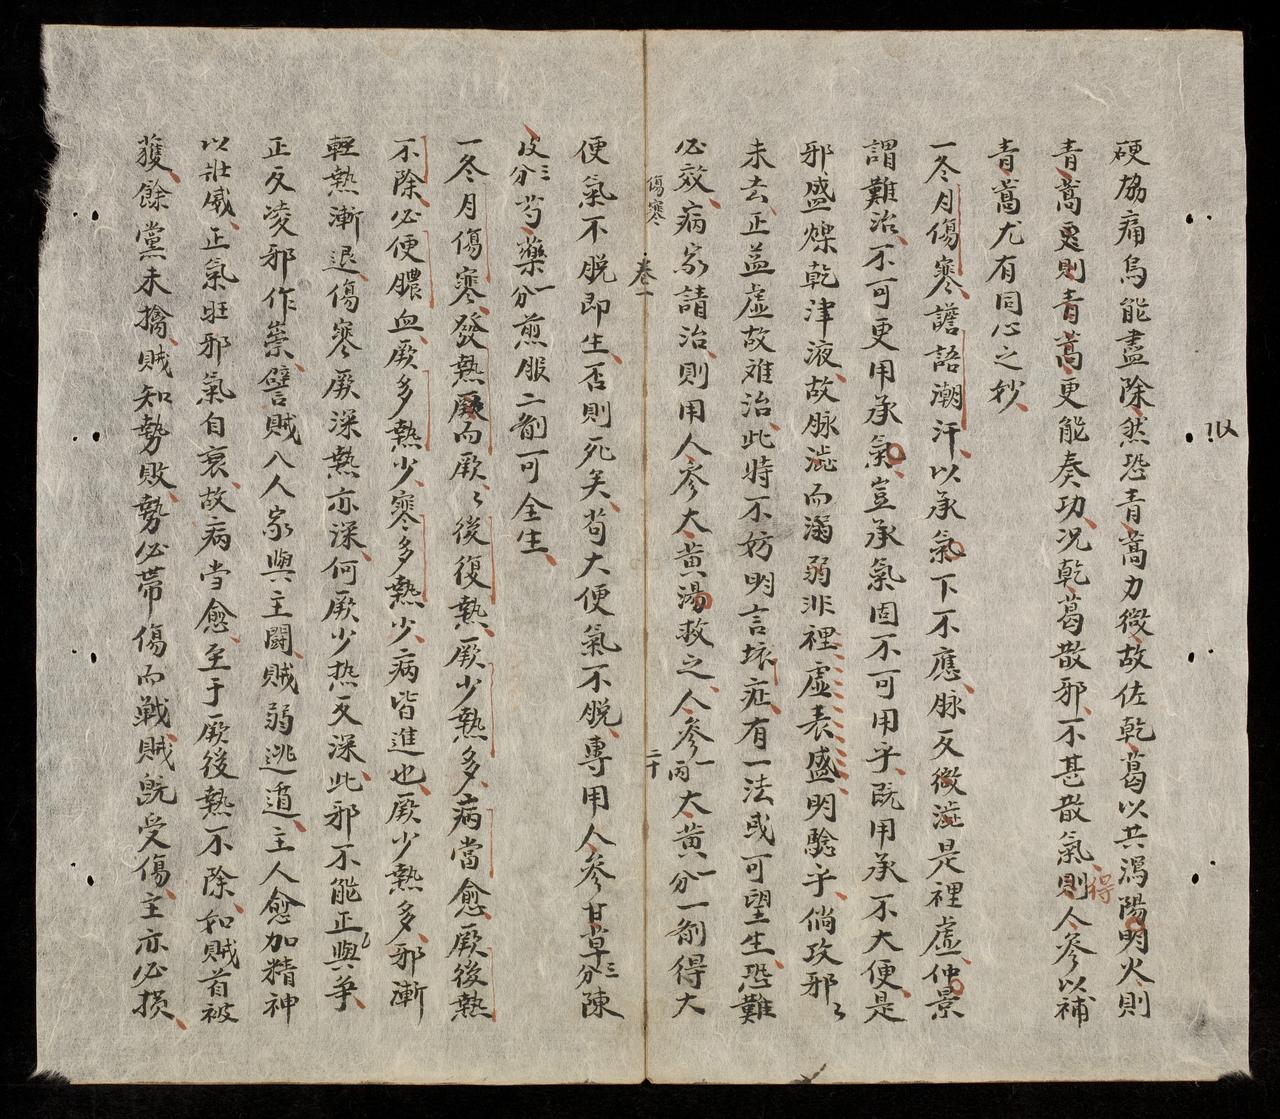 硬脇痛烏能盡除然恐青蒿力微故佐乾葛以共瀉陽明火則
青蒿更則青蒿更能奏功况乾葛散邪不甚散氣則得人參以補
青蒿尤有同心之妙
一冬月傷寒譫語潮汗以承氣下不應脉反微澁是裡虛仲景
謂難治不可更用承氣豈承氣固不可用乎既用承不大便是
邪盛爍乾津液故脉澁而溺弱非裡虛表盛明騐乎倘攻邪〻
未去正益虛故难治此時不妨明言壊症有一法或可望生恐難
必效病家請治則用人參大黄湯救之人參一兩大黄一分一劑得大
傷寒 卷一 二十
便氣不脱即生否則死矣苟大便氣不脱專用人參甘草三分陳
皮三分芍藥一分煎服二劑可全生
一冬月傷寒發熱厥而厥〻後復熱厥少熱多病當愈厥後熱
不除必便膿血厥多熱少寒多熱少病皆進也厥少熱多邪漸
輕熱漸退傷寒厥深熱亦深何厥少热反深此邪不能正與爭
正反凌邪作祟譬賊入人家與主鬪賊弱逃遁主人愈加精神
以壯威正氣旺邪氣自衰故病当愈至于厥後熱不除如賊首被
獲餘黨未擒賊知勢敗勢必帯傷而戦賊既受傷主亦必损